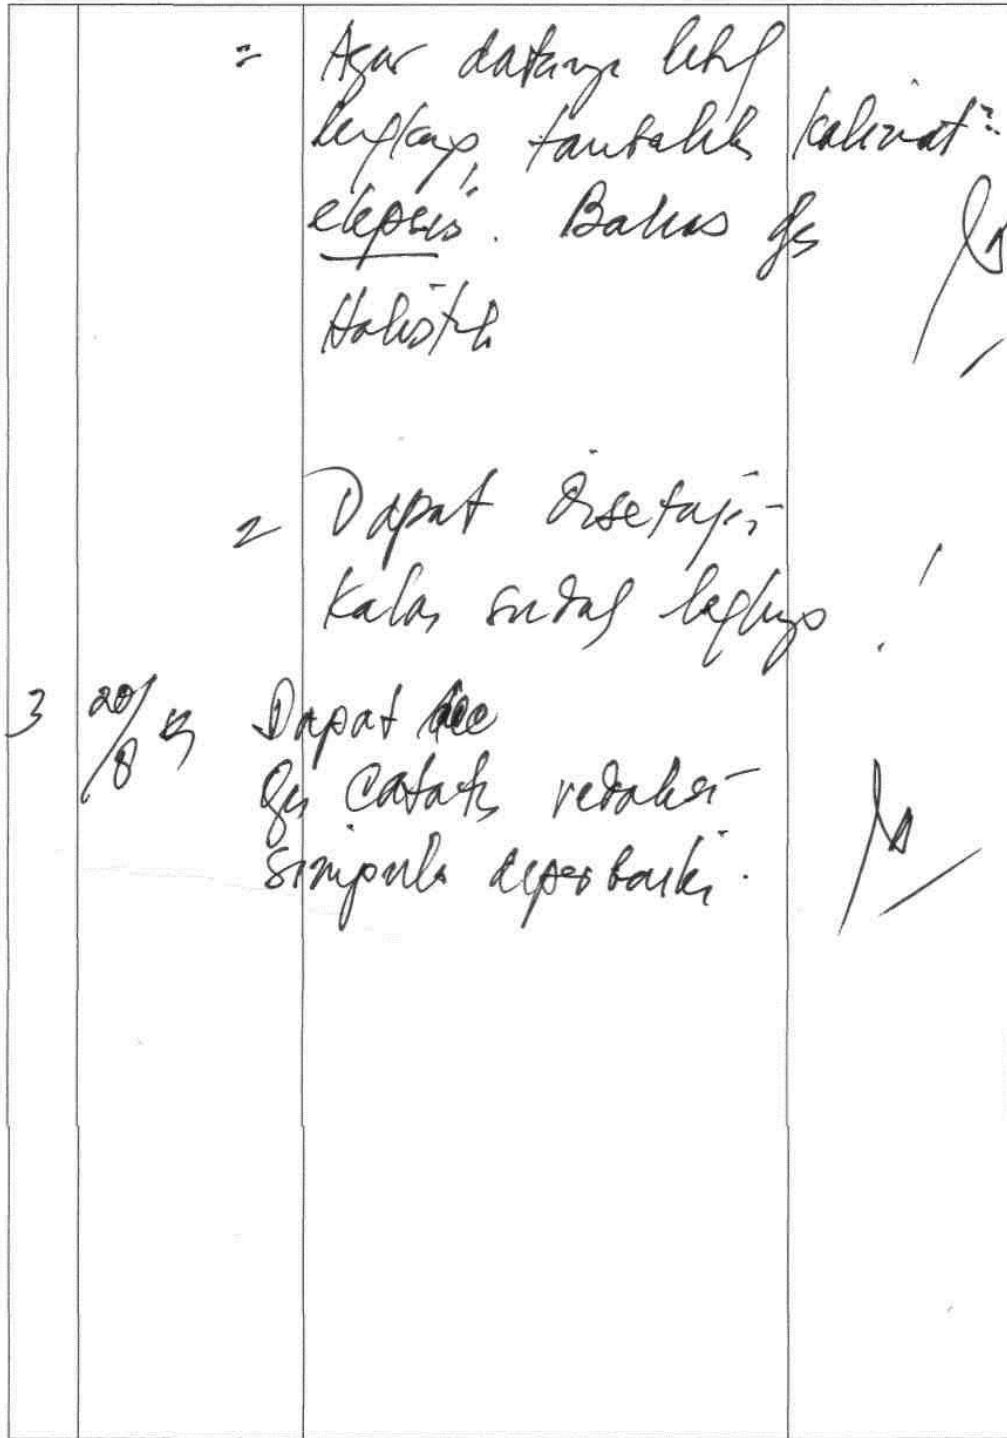 = Agar datanya lebih
lengkap, tambahkan kalimat²
elepsis. Bahas dg
Holistik
= Dapat disetujui
Kalau sudah lengkap !
3 20/8 Dapat acc
dg catatan redaksi
simpulan diperbaiki.